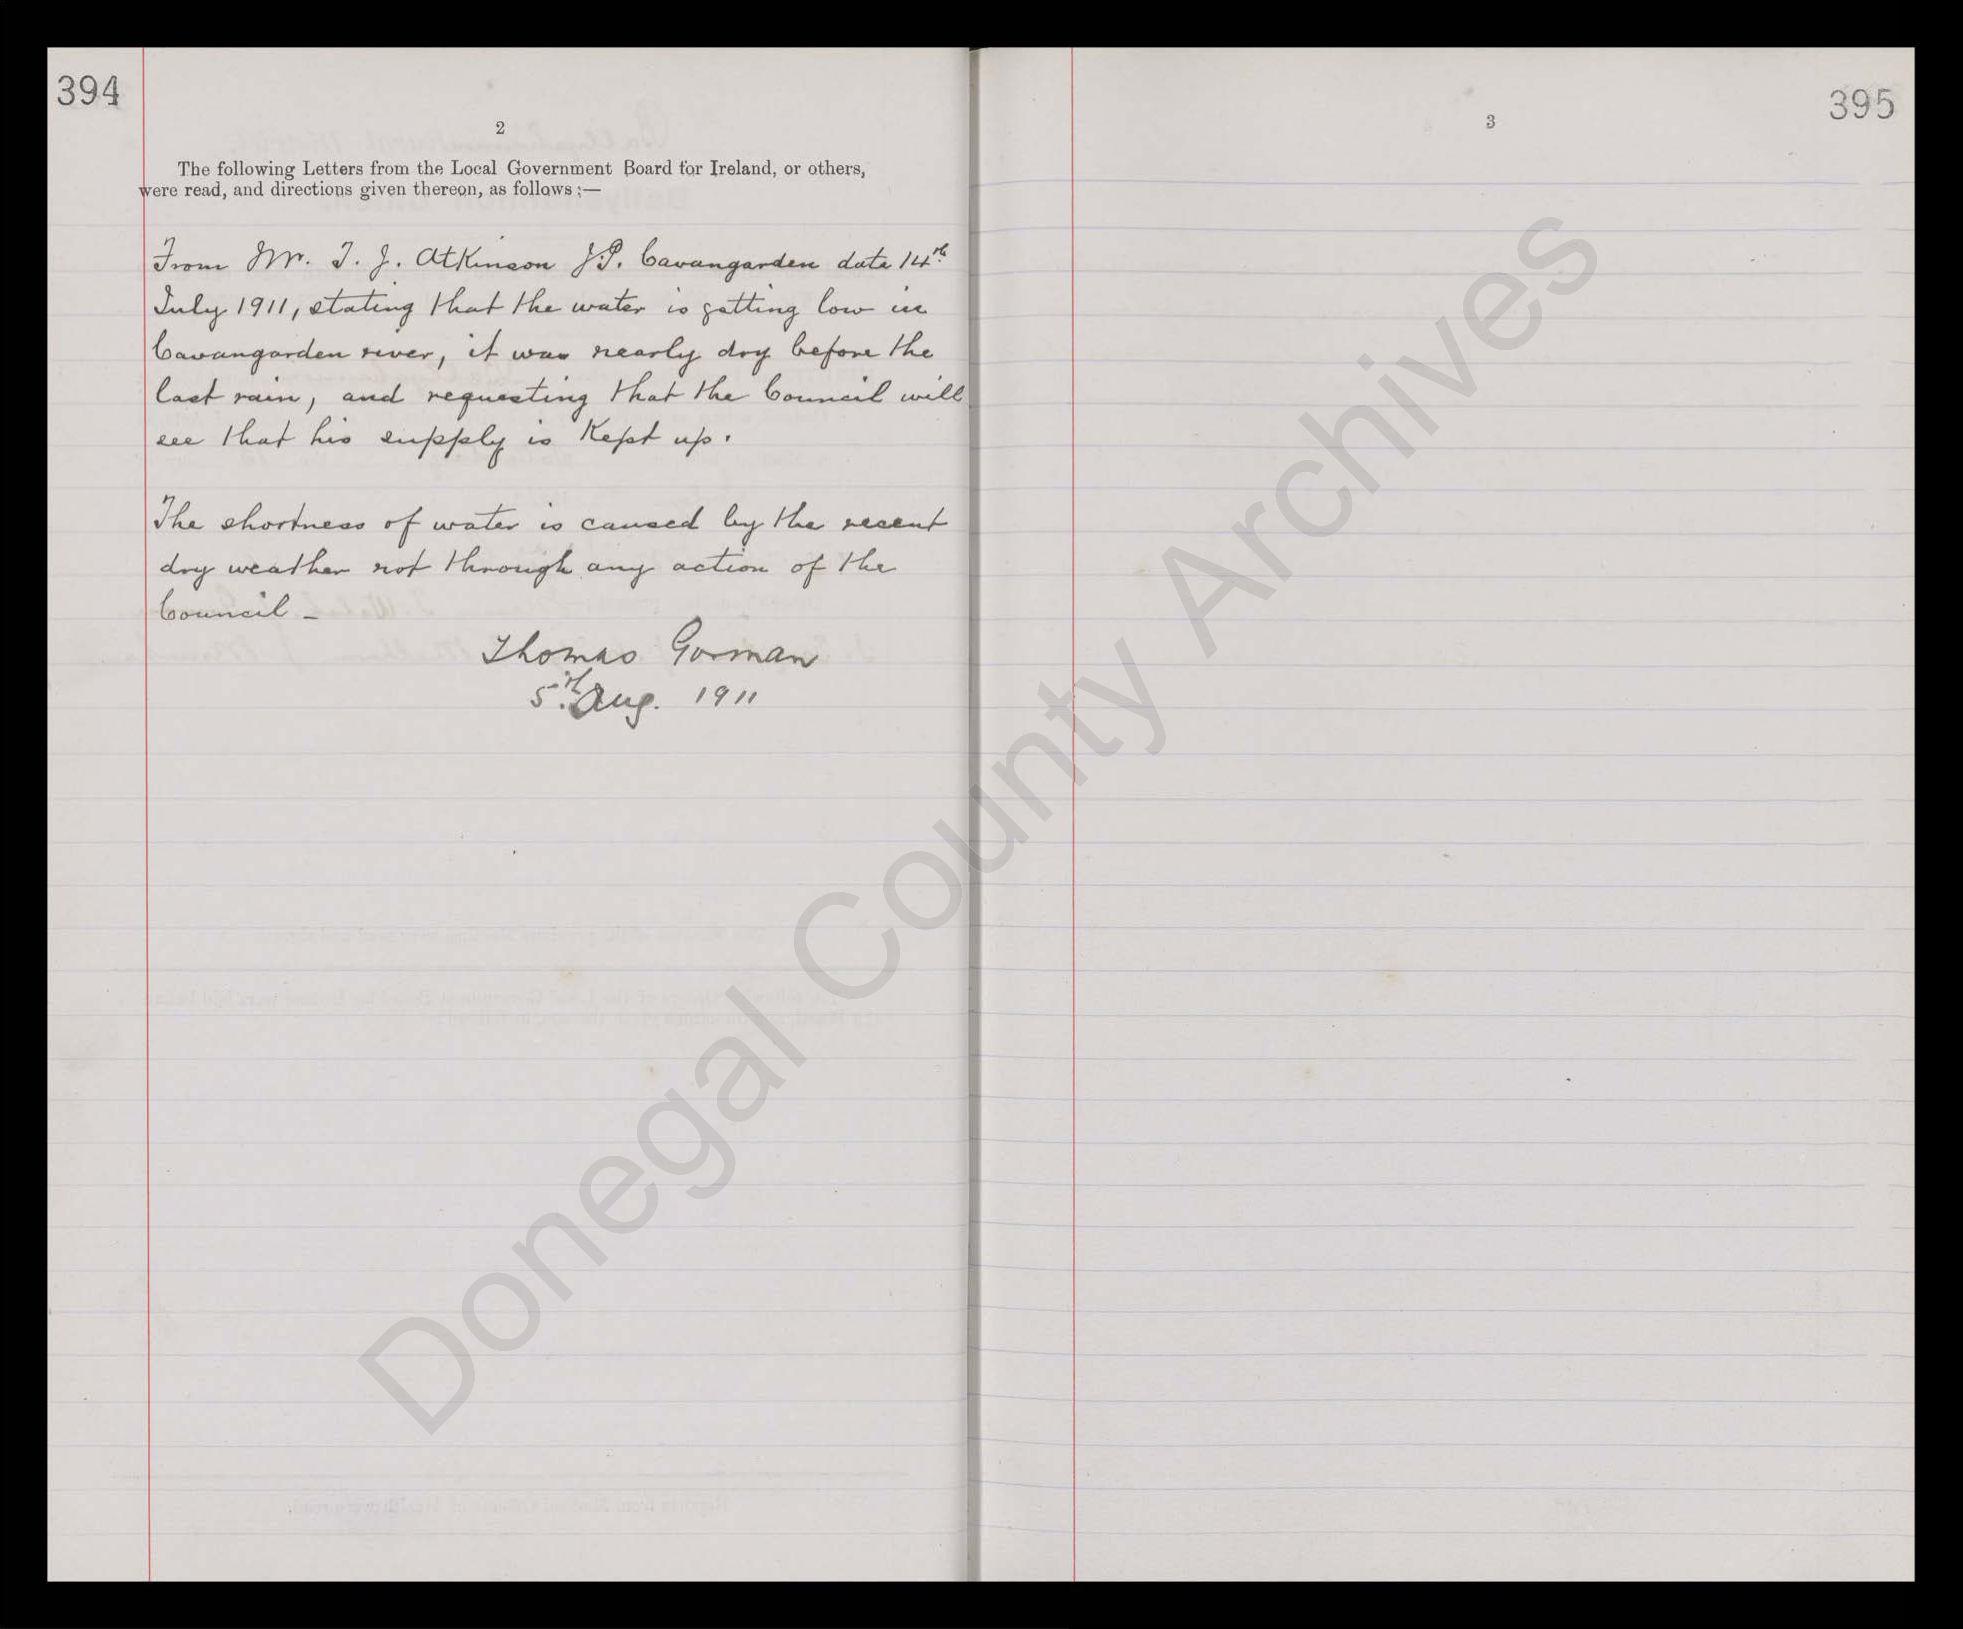 394
2
The following Letters from the Local Government Board for Ireland, or others,
were read, and directions given thereon, as follows :—
From Mr. T. J. Atkinson J.P. Cavangarden date 14th
July 1911, stating that the water is getting low in
Cavangarden river, it was nearly dry before the
last rain, and requesting that the Council will
see that his supply is Kept up.
The shortness of water is caused by the recent
dry weather not through any action of the
Council –
Thomas Gorman
5th Aug. 1911
395
3
Donegal County Archives